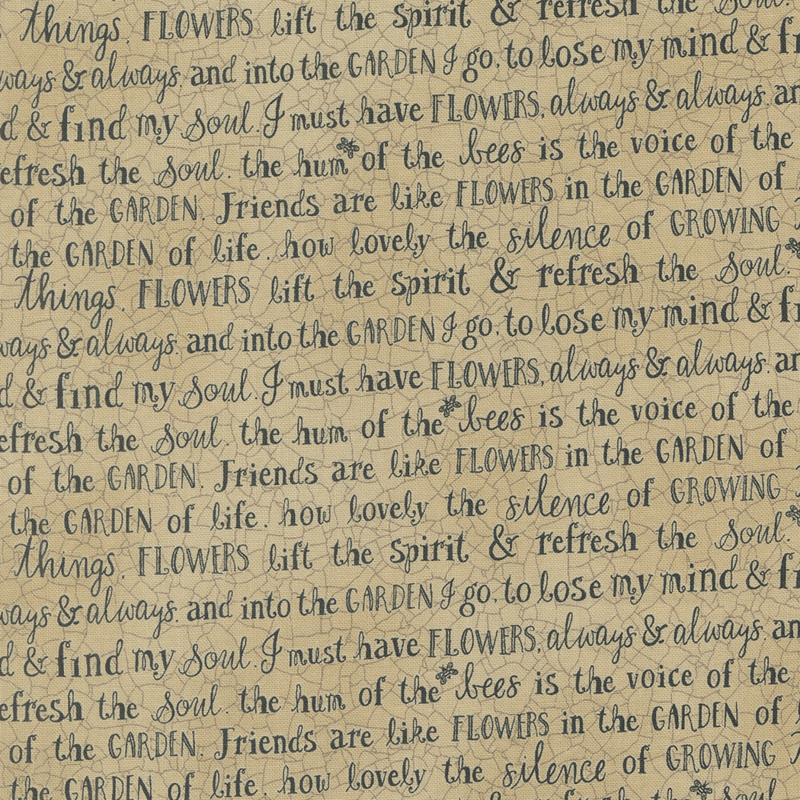 things. FLOWERS lift the spirit & refresh the soul.
ways & always. and into the GARDEN I go. to lose my mind & fi
d & find my soul. I must have FLOWERS, always & always. an
efresh the soul. the hum of the bees is the voice of the
of the GARDEN. Friends are like FLOWERS in the GARDEN of
the GARDEN of life. how lovely the silence of GROWING
things. FLOWERS lift the spirit & refresh the soul.
ways & always. and into the GARDEN I go. to lose my mind & fi
d & find my soul. I must have FLOWERS, always & always. an
efresh the soul. the hum of the bees is the voice of the
of the GARDEN. Friends are like FLOWERS in the GARDEN of
the GARDEN of life. how lovely the silence of GROWING
things. FLOWERS lift the spirit & refresh the soul.
ways & always. and into the GARDEN I go. to lose my mind & fi
d & find my soul. I must have FLOWERS, always & always. an
efresh the soul. the hum of the bees is the voice of the
of the GARDEN. Friends are like FLOWERS in the GARDEN of
the GARDEN of life. how lovely the silence of GROWING
soul